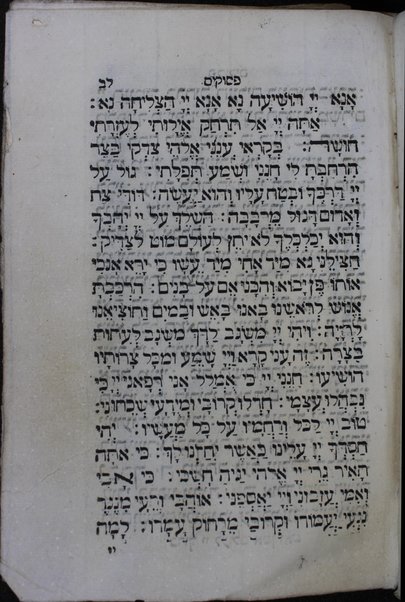 פסוקים לב
אָנָא יְיָ הוֹשִׁיעָה נָּא אָנָא יְיָ הַצְלִיחָה נָא׃
אַתָּה יְיָ אַל תִּרְחָק אֱיָלוּתִי לְעֶזְרָתִי
חוּשָׁה׃ בְּקָרְאִי עֲנֵנִי אֱלֹהֵי צִדְקִי בַּצַּר
הִרְחַבְתָּ לִּי חָנֵּנִי וּשְׁמַע תְּפִלָּתִי׃ גּוֹל עַל
יְיָ דַּרְכֶּךָ וּבְטַח עָלָיו וְהוּא יַעֲשֶׂה׃ דּוֹדִי צַח
וְאָדוֹם דָּגוּל מֵרְבָבָה׃ הַשְׁלֵךְ עַל יְיָ יְהָבְךָ
וְהוּא יְכַלְכְּלֶךָ לֹא יִתֵּן לְעוֹלָם מוֹט לַצַּדִּיק׃
הַצִּילֵנִי נָא מִיַּד אָחִי מִיַּד עֵשָׂו כִּי יָרֵא אָנֹכִי
אוֹתוֹ פֶּן יָבוֹא וְהִכַּנִי אֵם עַל בָּנִים׃ הִרְכַּבְתָּ
אֱנוֹשׁ לְרֹאשֵׁנוּ בָּאנוּ בָאֵשׁ וּבַמַּיִם וַתּוֹצִיאֵנוּ
לָרְוָיָה׃ וִיהִי יְיָ מִשְׂגָּב לַדָּךְ מִשְׂגָּב לְעִתּוֹת
בַּצָּרָה׃ זֶה עָנִי קָרָא וַיְיָ שָׁמֵעַ וּמִכָּל צָרוֹתָיו
הוֹשִׁיעוֹ׃ חָנֵּנִי יְיָ כִּי אֻמְלַל אָנִי רְפָאֵנִי יְיָ כִּי
נִבְהֲלוּ עֲצָמָי׃ חָדְלוּ קְרוֹבָי וּמְיֻדָּעַי שְׁכֵחוּנִי׃
טוֹב יְיָ לַכֹּל וְרַחֲמָיו עַל כָּל מַעֲשָׂיו׃ יְהִי
חַסְדְּךָ יְיָ עָלֵינוּ כַּאֲשֶׁר יִחַלְנוּ לָךְ׃ כִּי אַתָּה
תָּאִיר נֵרִי יְיָ אֱלֹהַי יַגִּיהַּ חָשְׁכִּי׃ כִּי אָבִי
וְאִמִּי עֲזָבוּנִי וַיְיָ יַאַסְפֵנִי׃ אוֹהֲבַי וְרֵעַי מִנֶּגֶד
נִגְעִי יַעֲמוֹדוּ וּקְרוֹבַי מֵרָחוֹק עָמָדוּ׃ לָמָה
יְיָ